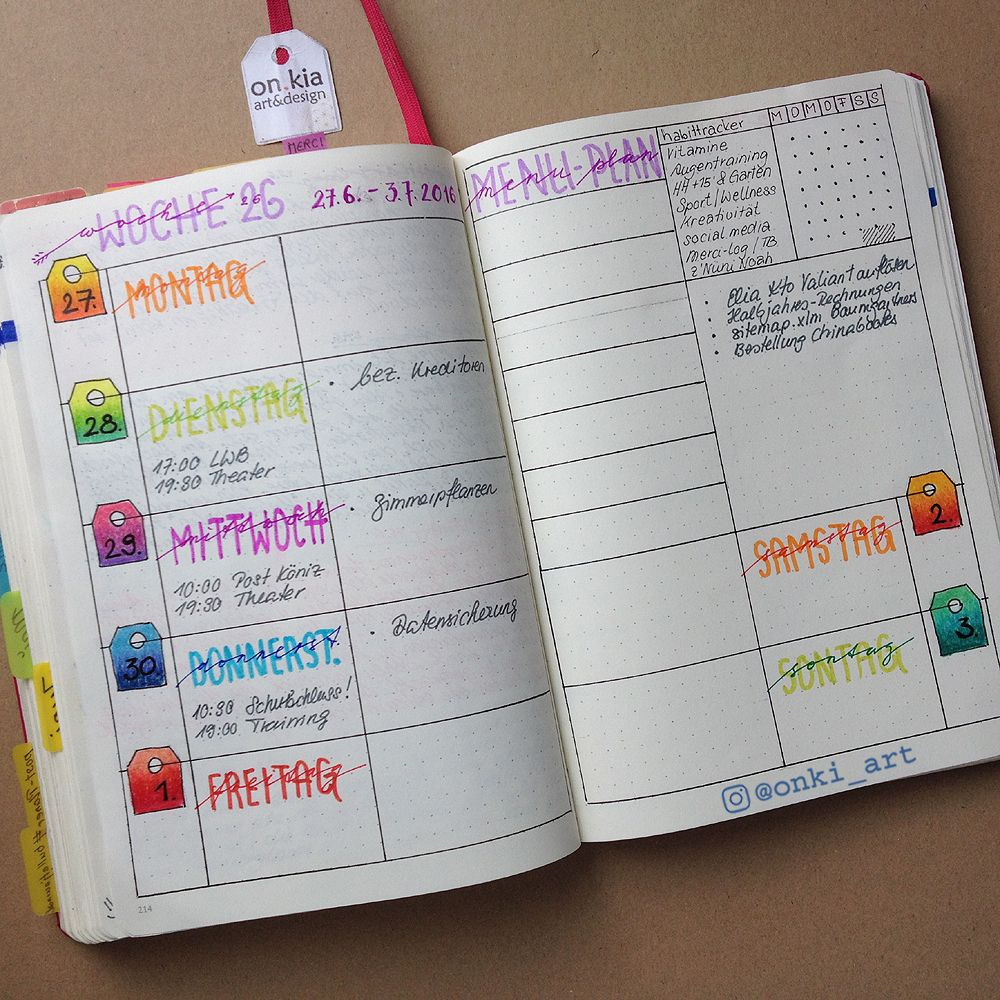 on.kia
art&design
MERCI
WOCHE 26
woche 26
27.6. - 3.7.2016
27.
MONTAG
montag
28.
DIENSTAG
dienstag
• bez. Kreditoren
17:00 LWB
19:30 Theater
29.
MITTWOCH
mittwoch
• Zimmerpflanzen
10:00 Post Köniz
19:30 Theater
30.
DONNERST.
donnerst.
• Datensicherung
10:30 Schulschluss!
19:00 Training
1.
FREITAG
freitag
214
MENU-PLAN
menu plan
habittracker
M D M D F S S
Vitamine
Augentraining
HH+15' & Garten
Sport/Wellness
Kreativität
social media
merci-log/TB
z'Nüni Noah
• Elia Kto Valiant auflösen
• Halbjahres-Rechnungen
• sitemap.xlm Baumgartners
• Bestellung Chinabooks
2.
SAMSTAG
samstag
3.
SONTAG
sontag
@onki_art